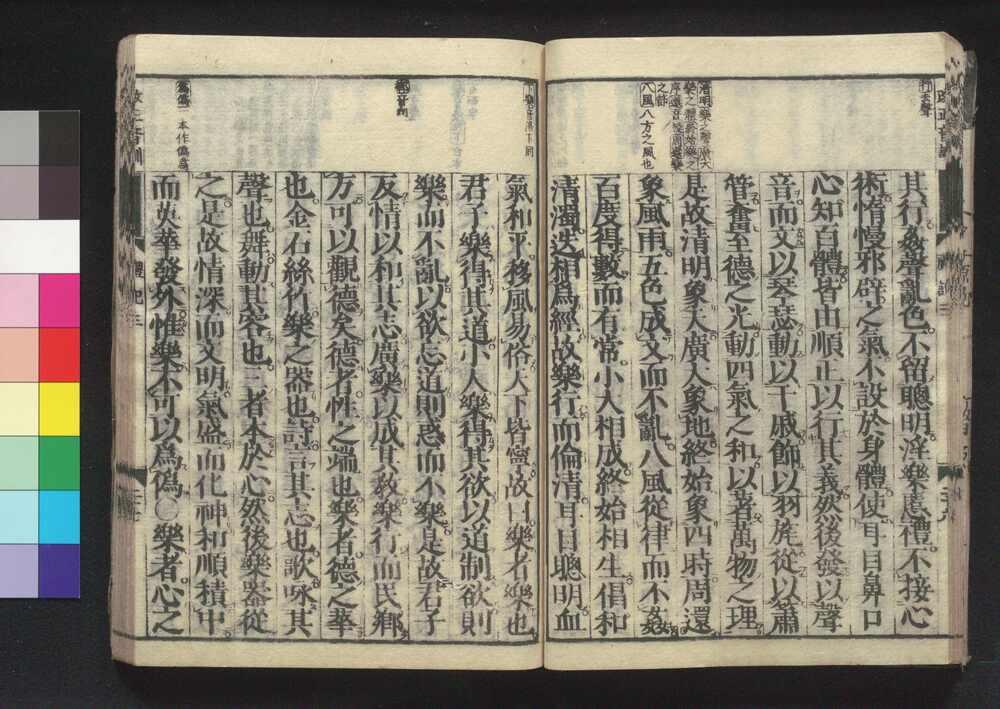 其行姦聲亂色不留聰明淫樂慝禮不接心
術惰慢邪辟之氣不設於身體使耳目鼻口
心知百體皆由順正以行其義然後發以聲
音而文以琴瑟動以干戚飾以羽旄從以簫
管奮至德之光動四氣之和以著萬物之理
是故清明象天廣大象地終始象四時周還
象風雨五色成文而不亂八風從律而不姦
百度得數而有常小大相成終始相生倡和
清濁迭相爲經故樂行而倫清耳目聰明血
八風八方之風也
氣和平移風易俗天下皆寧故曰樂者樂也
君子樂得其道小人樂得其欲以道制欲則
樂而不亂以欲忘道則惑而不樂是故君子
反情以和其志廣樂以成其敎樂行而民鄕
方可以觀德矣德者性之端也樂者德之華
也金石絲竹樂之器也詩言其志也歌咏其
聲也舞動其容也三者本於心然後樂器從
之是故情深而文明氣盛而化神和順積中
而英華發外惟樂不可以爲僞○樂者心之